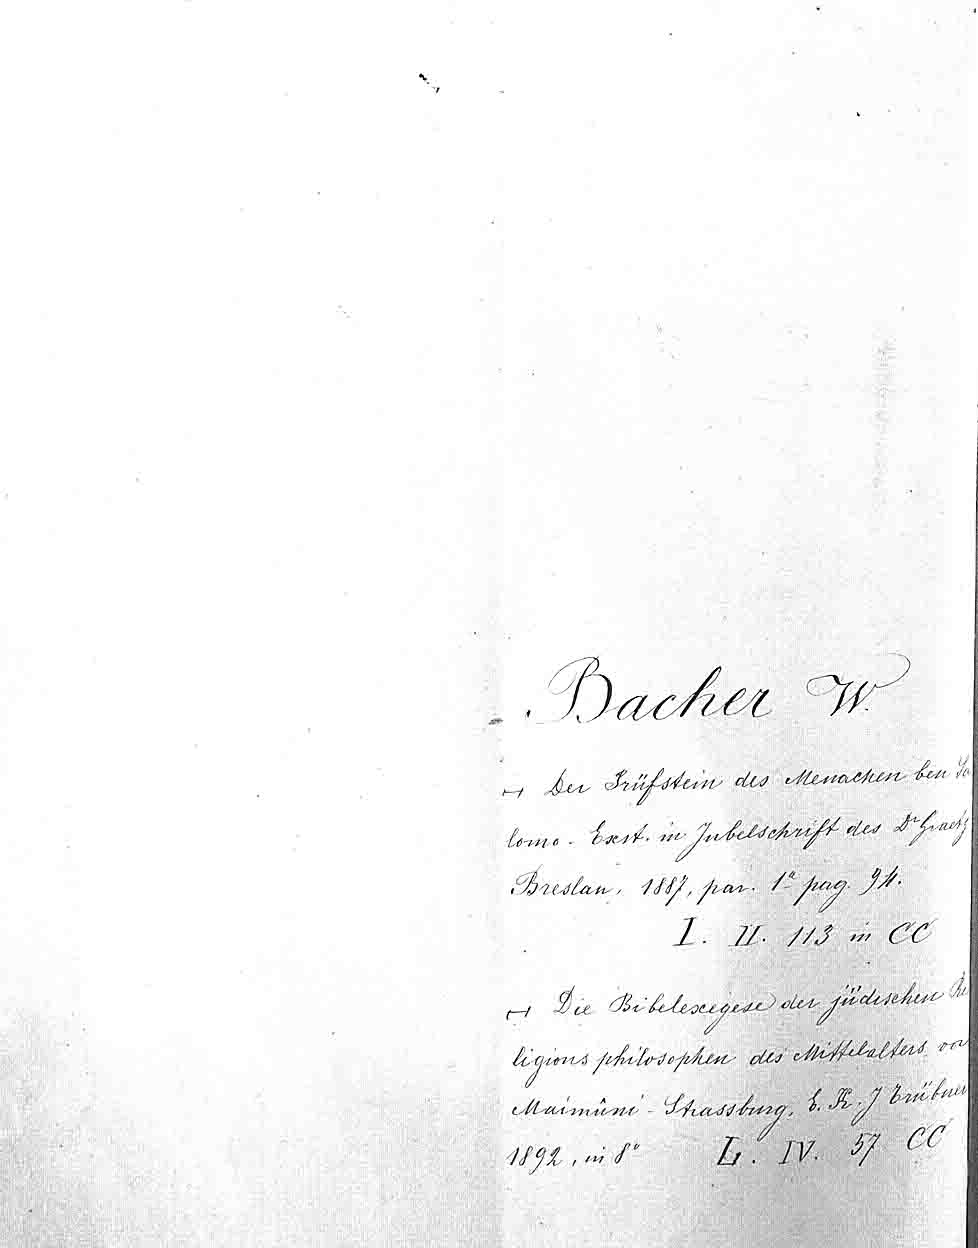 Bacher W.
Der Prüfstein des Menachen ben Sa
lomo. Exst. in Jubelschrift des Dr Graetz
Breslau, 1887, par. 1a pag. 94.
I. II. 113 in CC
Die Bibelexegese der jüdischen Re
ligions philosophen des Mittelalters vor
Maimûni - Strassburg, E. K. J Trübner
1892, in 8°    L. IV. 57 CC